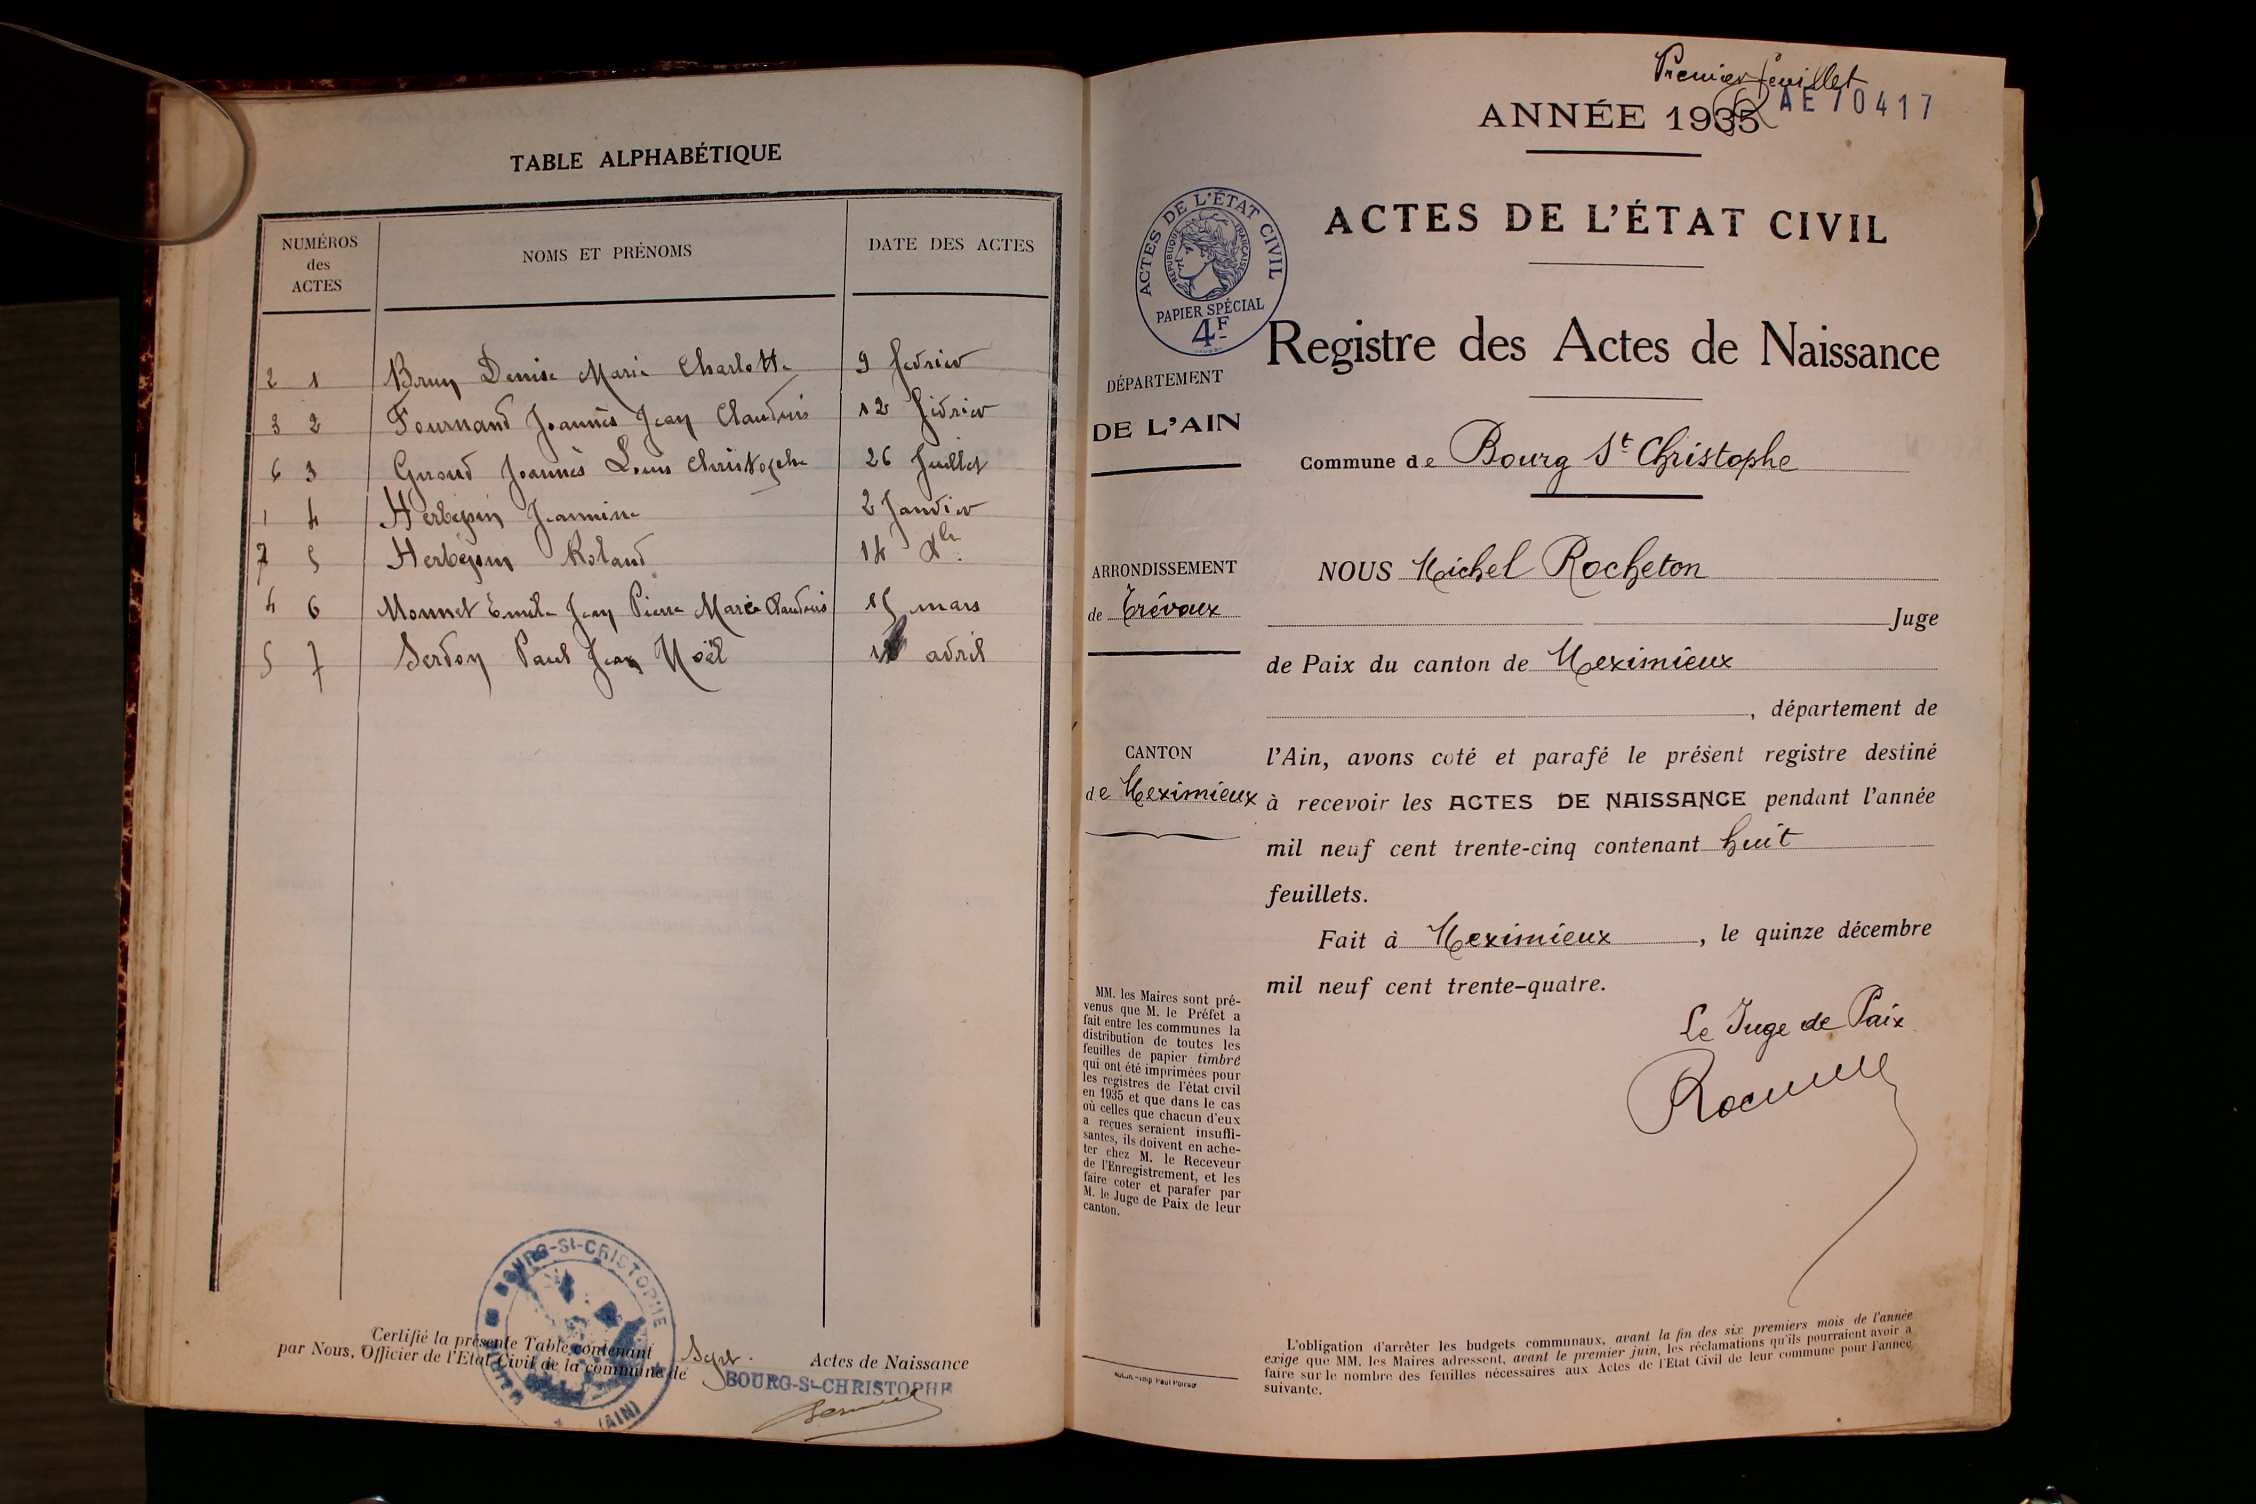 TABLE ALPHABÉTIQUE
NUMÉROS
des
ACTES
NOMS ET PRÉNOMS
DATE DES ACTES
2 1 Brun Denise Marie Charlotte 9 fevrier
3 2 Fournand Joannès Jean Claudius 12 fevrier
6 3 Giroud Joannès Louis Christophe 26 Juillet
1 4 Herbepin Jeannine 2 Janvier
7 5 Herbepin Roland 14
4 6 Monnet Emile Jean Pierre Marie Claudius 15 mars
5 7 Serdon Paul Jean Noël avril
BOURG-St-CRISTOPHE
(AIN)
Certifié la présente Table contenant Sept. Actes de Naissance
par Nous, Officier de l'État Civil de la commune de BOURG-St-CHRISTOPHE
Premier feuillet
AE 70417
ANNÉE 1935
ACTES DE L'ÉTAT CIVIL
RÉPUBLIQUE FRANÇAISE
PAPIER SPÉCIAL
4F
ACTES DE L'ÉTAT CIVIL
Registre des Actes de Naissance
DÉPARTEMENT
DE L'AIN
Commune de Bourg St Christophe
ARRONDISSEMENT
de Trévoux
CANTON
de Meximieux
NOUS Michel Rocheton
Juge
de Paix du canton de Meximieux
, département de
l'Ain, avons coté et parafé le présent registre destiné
à recevoir les ACTES DE NAISSANCE pendant l'année
mil neuf cent trente-cinq contenant huit
feuillets.
Fait à Meximieux, le quinze décembre
mil neuf cent trente-quatre.
Le Juge de Paix
MM. les Maires sont pré-
venus que M. le Préfet a
fait entre les communes la
distribution de toutes les
feuilles de papier timbré
qui ont été imprimées pour
les registres de l'état civil
en 1935 et que dans le cas
où celles que chacun d'eux
a reçues seraient insuffi-
santes, ils doivent en ache-
ter chez M. le Receveur
de l'Enregistrement, et les
faire coter et parafer par
M. le Juge de Paix de leur
canton.
L'obligation d'arrêter les budgets communaux, avant la fin des six premiers mois de l'année
exige que MM. les Maires adressent, avant le premier juin, les réclamations qu'ils pourraient avoir à
faire sur le nombre des feuilles nécessaires aux Actes de l'Etat Civil de leur commune pour l'année
suivante.